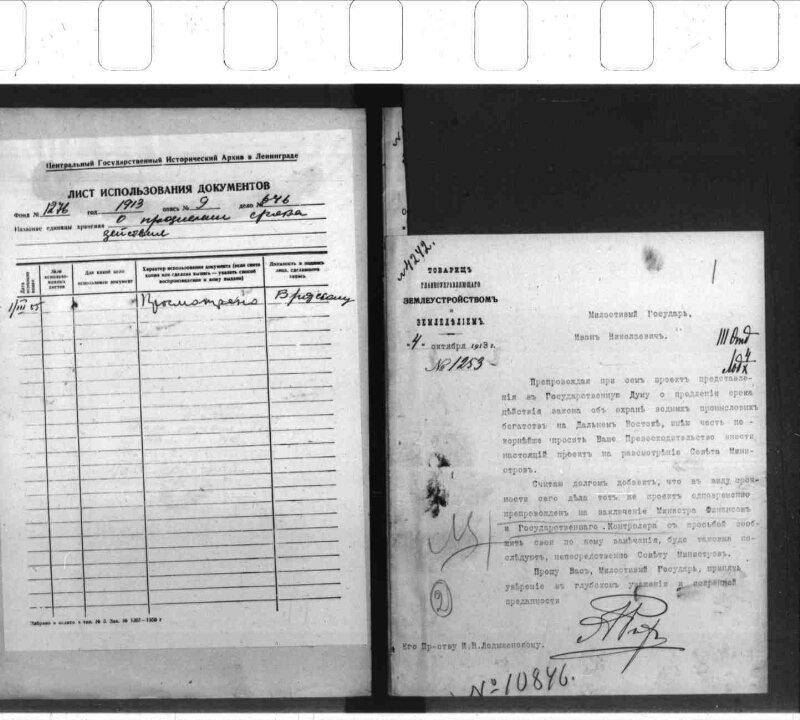 Центральный Государственный Исторический Архив в Ленинграде
ЛИСТ ИСПОЛЬЗОВАНИЯ ДОКУМЕНТОВ
Фонд № 1276 год 1913 опись № 9 дело №
Название единицы хранения О продлении срока
действия
Дата
№№ использованных листов
Для какой цели использован документ
Характер использования документа (если снята копия или сделана выпись — указать способ воспроизведения и кому выданы)
Должность и подпись лица, сделавшего запись
Просмотрено
№4242.
ТОВАРИЩЪ
ГЛАВНОУПРАВЛЯЮЩАГО
ЗЕМЛЕУСТРОЙСТВОМЪ
И
ЗЕМЛЕДѢЛІЕМЪ.
"4" октября 1913 г.
№ 1253
1
Милостивый Государь,
Иванъ Николаевичъ.
III Отд
Препровождая при семъ проектъ представле-
нія въ Государственную Думу о продленіи срока
дѣйствія закона объ охранѣ водныхъ промысловыхъ
богатствъ на Дальнемъ Востокѣ, имѣю честь по-
корнѣйше просить Ваше Превосходительство внести
настоящій проектъ на разсмотрѣніе Совѣта Мини-
стровъ.
Считаю долгомъ добавить, что въ виду сроч-
ности сего дѣла тотъ же проектъ одновременно
препровожденъ на заключеніе Министра Финансовъ
и Государственнаго Контролера съ просьбой сооб-
щить свои по нему замѣчанія, буде таковыя по-
слѣдуютъ, непосредственно Совѣту Министровъ.
Прошу Васъ, Милостивый Государь, принять
увѣреніе въ глубокомъ уваженіи и искренней
преданности
2
Его Пр-ству И.Н.Лодыженскому.
№10846.